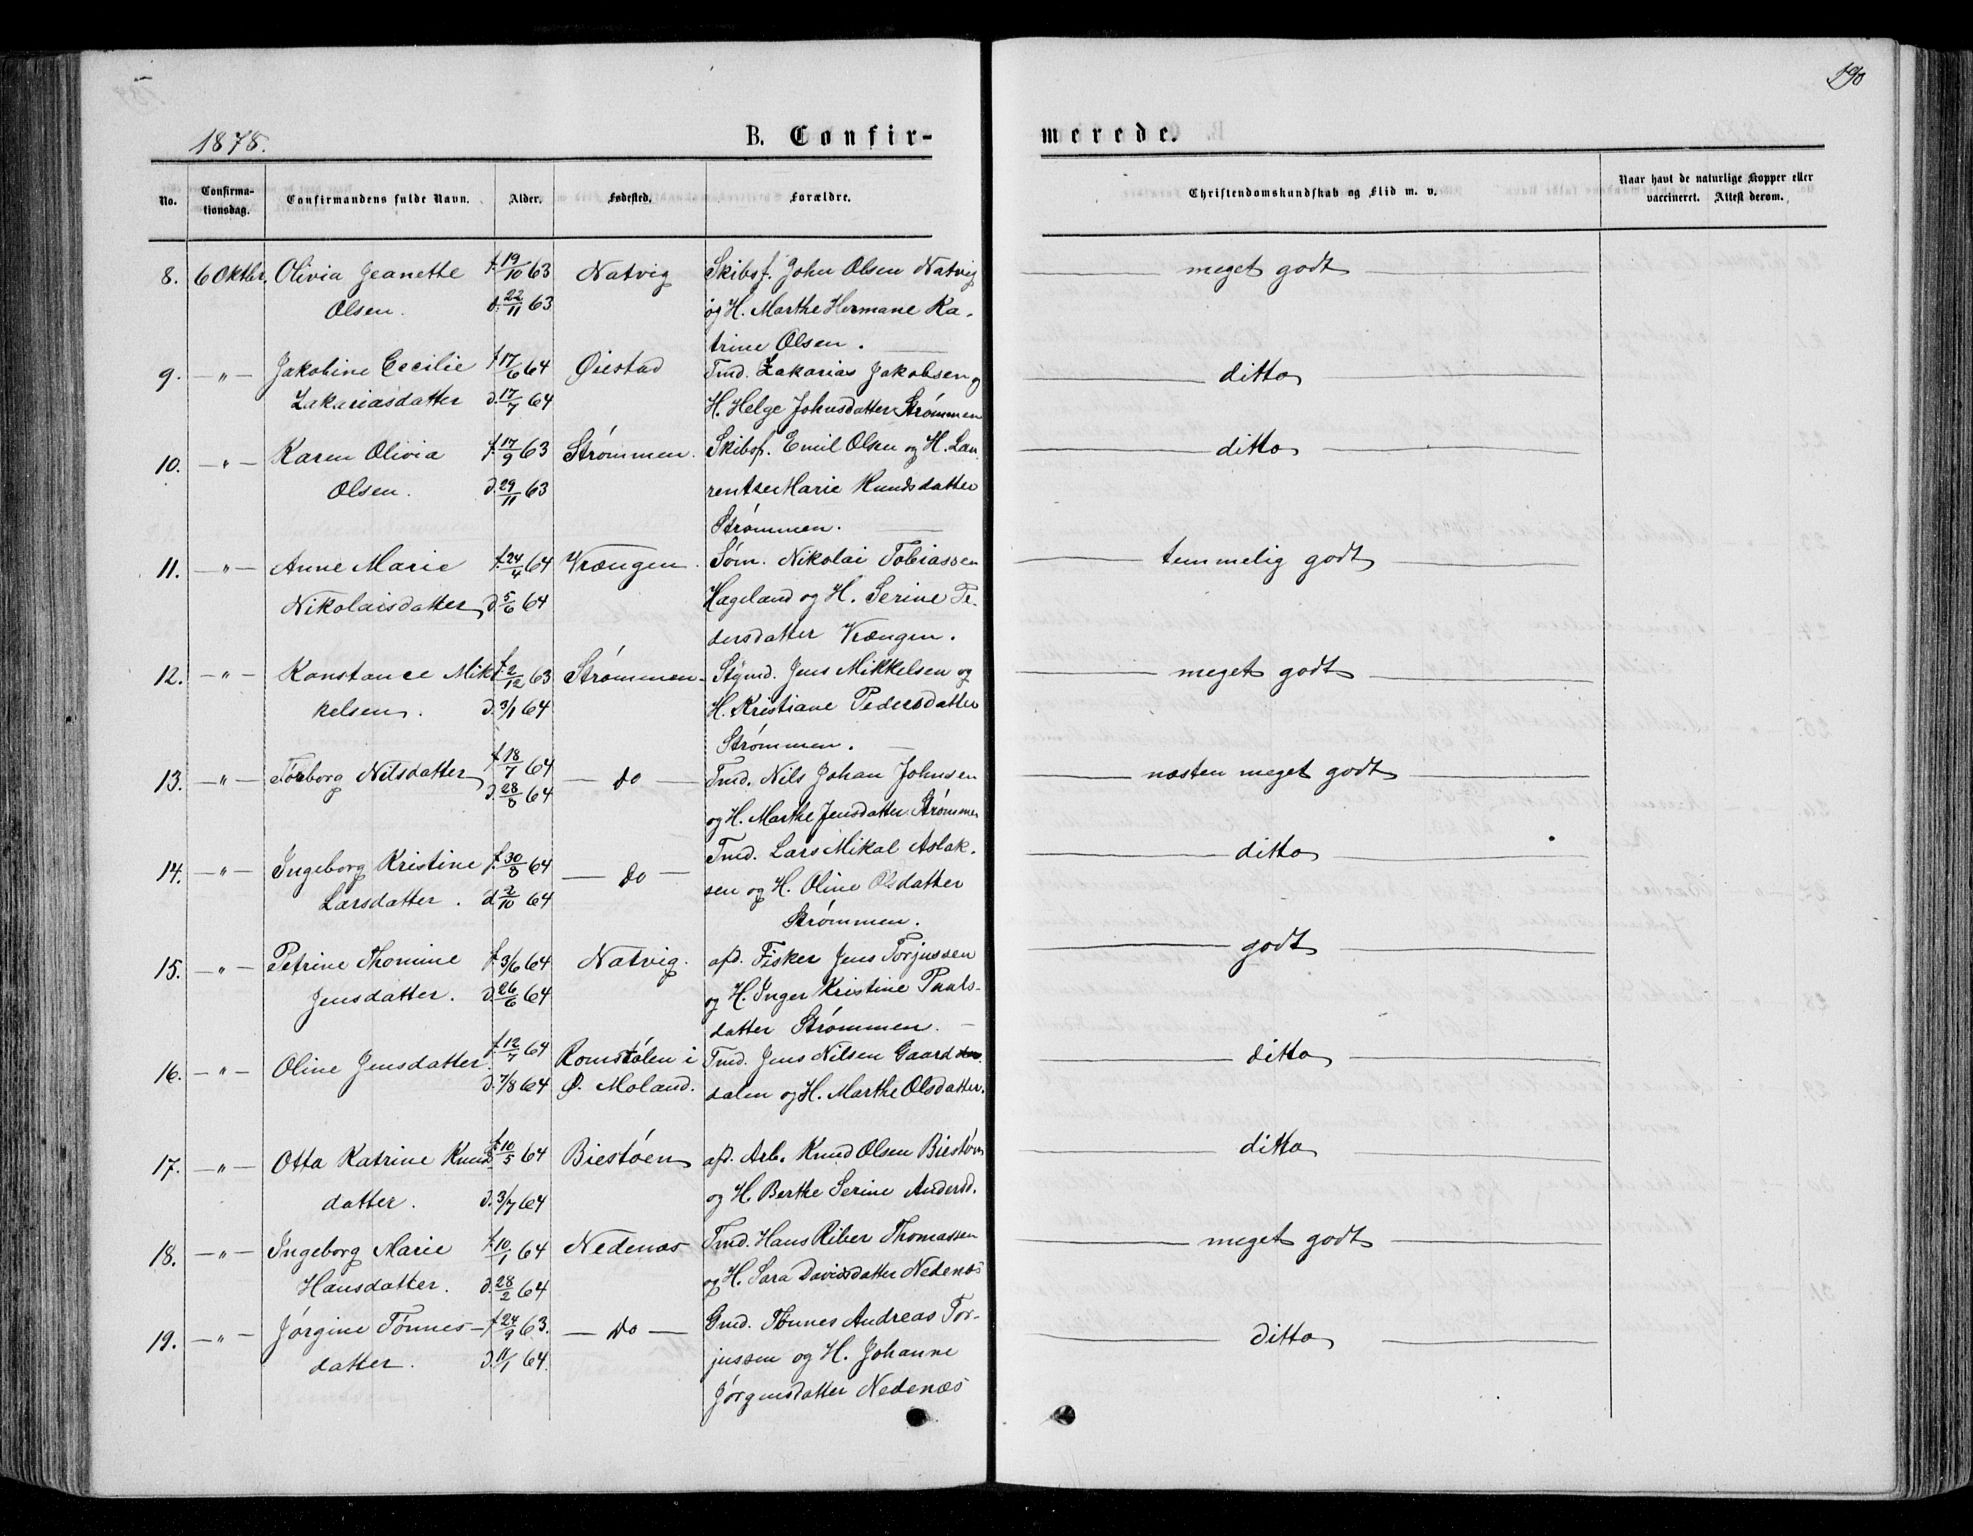 190
1878.
B. Confir-
merede.
No.
Confirma-
tionsdag.
Confirmandens fulde Navn.
Alder.
Fødested.
Forældre.
Christendomskundskab og Flid m. v.
Naar havt de naturlige Kopper eller
vaccineret. Attest derom.
8. 6 Oktbr. Olivia Jeanette f. 19/10 63 Natvig Skibsf. John Olsen Natvig meget godt
Olsen. d. 22/11 63 og H. Marthe Hermane Ka-
trine Olsen.
9. —„— Jakobine Cecilie f. 17/6 64 Øiestad Tmd. Zakarias Jakobsen og ditto
Zakariasdatter d. 17/7 64 H. Helge Johnsdatter Strømmen
10. —„— Karen Olivia f. 17/9 63 Strømmen. Skibsf. Emil Olsen og H. Lau-
ditto
Olsen. d. 29/11 63 rentze Marie Knudsdatter
Strømmen.
11. —„— Anne Marie f. 24/4 64 Vrængen. Søm. Nikolai Tobiassen temmelig godt
Nikolaisdatter d. 5/6 64 Hageland og H. Serine Pe-
dersdatter Vrængen.
12. —„— Konstance Mik- f. 2/12 63 Strømmen Stymd. Jens Mikkelsen og meget godt
kelsen. d. 3/1 64 H. Kristiane Pedersdatter
Strømmen.
13. —„— Torborg Nilsdatter f. 18/7 64 — Do — Tmd. Nils Johan Johnsen næsten meget godt
d. 28/8 64 og H. Marthe Jensdatter Strømmen
14. —„— Ingeborg Kristine f. 30/8 64 — Do — Tmd. Lars Mikal Aslak- ditto
Larsdatter. d. 2/10 64 sen og H. Oline Olsdatter
Strømmen.
15. —„— Petrine Thomine f. 3/6 64 Natvig. afd. Fisker Jens Torjussen godt
Jensdatter. d. 26/6 64 og H. Inger Kristine Paals-
datter Strømmen.
16. —„— Oline Jensdatter. f. 12/7 64 Romstølen i Tmd. Jens Nilsen Gaard ditto
d. 7/8 64 Ø. Moland. dalen og H. Marthe Olsdatter.
17. —„— Otta Katrine Knuds f. 10/5 64 Biestøen afd. Arb. Knud Olsen Biestøen ditto
datter. d. 3/7 64 og H. Berthe Serine Andersd.
18. —„— Ingeborg Marie f. 10/1 64 Nedenæs Tmd. Hans Riber Thomassen meget godt
Hansdatter. d. 28/2 64 og H. Sara Davidsdatter Nedenæs
19. —„— Jørgine Tønnes- f. 24/9 63. — Do — Gmd. Tønnes Andreas Tor- ditto
datter. d. 11/1 64. jussen og H. Johanne
Jørgensdatter Nedenæs